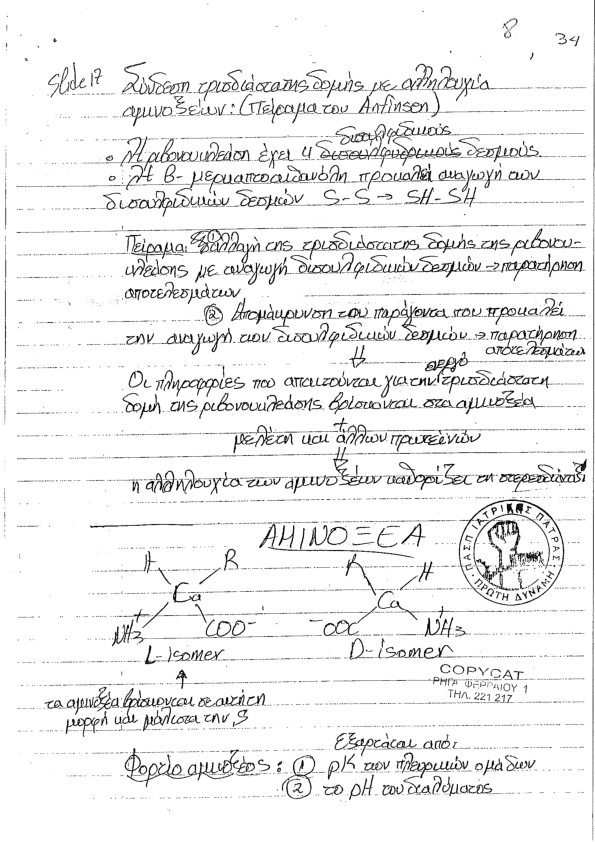 8
34
Slide 17 Σύνδεση τρισδιάστατης δομής με αλληλουχία
αμινοξέων: (Πείραμα του Anfinsen)
δισουλφιδικούς
• Η ριβονουκλεάση έχει 4 δισουλφυδρικούς δεσμούς
• Η Β-μερκαπτοαιθανόλη προκαλεί αναγωγή των
δισουλφιδικών δεσμών S-S → SH-SH
Πείραμα: ① αλλαγή της τρισδιάστατης δομής της ριβονου-
κλεάσης με αναγωγή δισουλφιδικών δεσμών → παρατήρηση
αποτελεσμάτων
② Απομάκρυνση του παράγοντα που προκαλεί
την αναγωγή των δισουλφιδικών δεσμών → παρατήρηση
αποτελεσμάτων
⇓
Οι πληροφορίες που απαιτούνται για την τρισδιάστατη
δομή της ριβονουκλεάσης βρίσκονται στα αμινοξέα
+
μελέτη και άλλων πρωτεϊνών
⇓
η αλληλουχία των αμινοξέων καθορίζει τη στερεοδιάταξη
ΑΜΙΝΟΞΕΑ
ΠΑΣΠ ΙΑΤΡΙΚΗΣ ΠΑΤΡΑΣ
ΠΡΩΤΗ ΔΥΝΑΜΗ
H R R H
Ca Ca
+ +
NH3 COO- -OOC NH3
L-isomer D-isomer
↑
COPYCAT
ΡΗΓΑ ΦΕΡΡΑΙΟΥ 1
ΤΗΛ. 221 217
τα αμινοξέα βρίσκονται σε αυτή τη
μορφή και μάλιστα την S
Εξαρτάται από:
Φορτίο αμινοξέος: ① pK των πλευρικών ομάδων
② το pH του διαλύματος